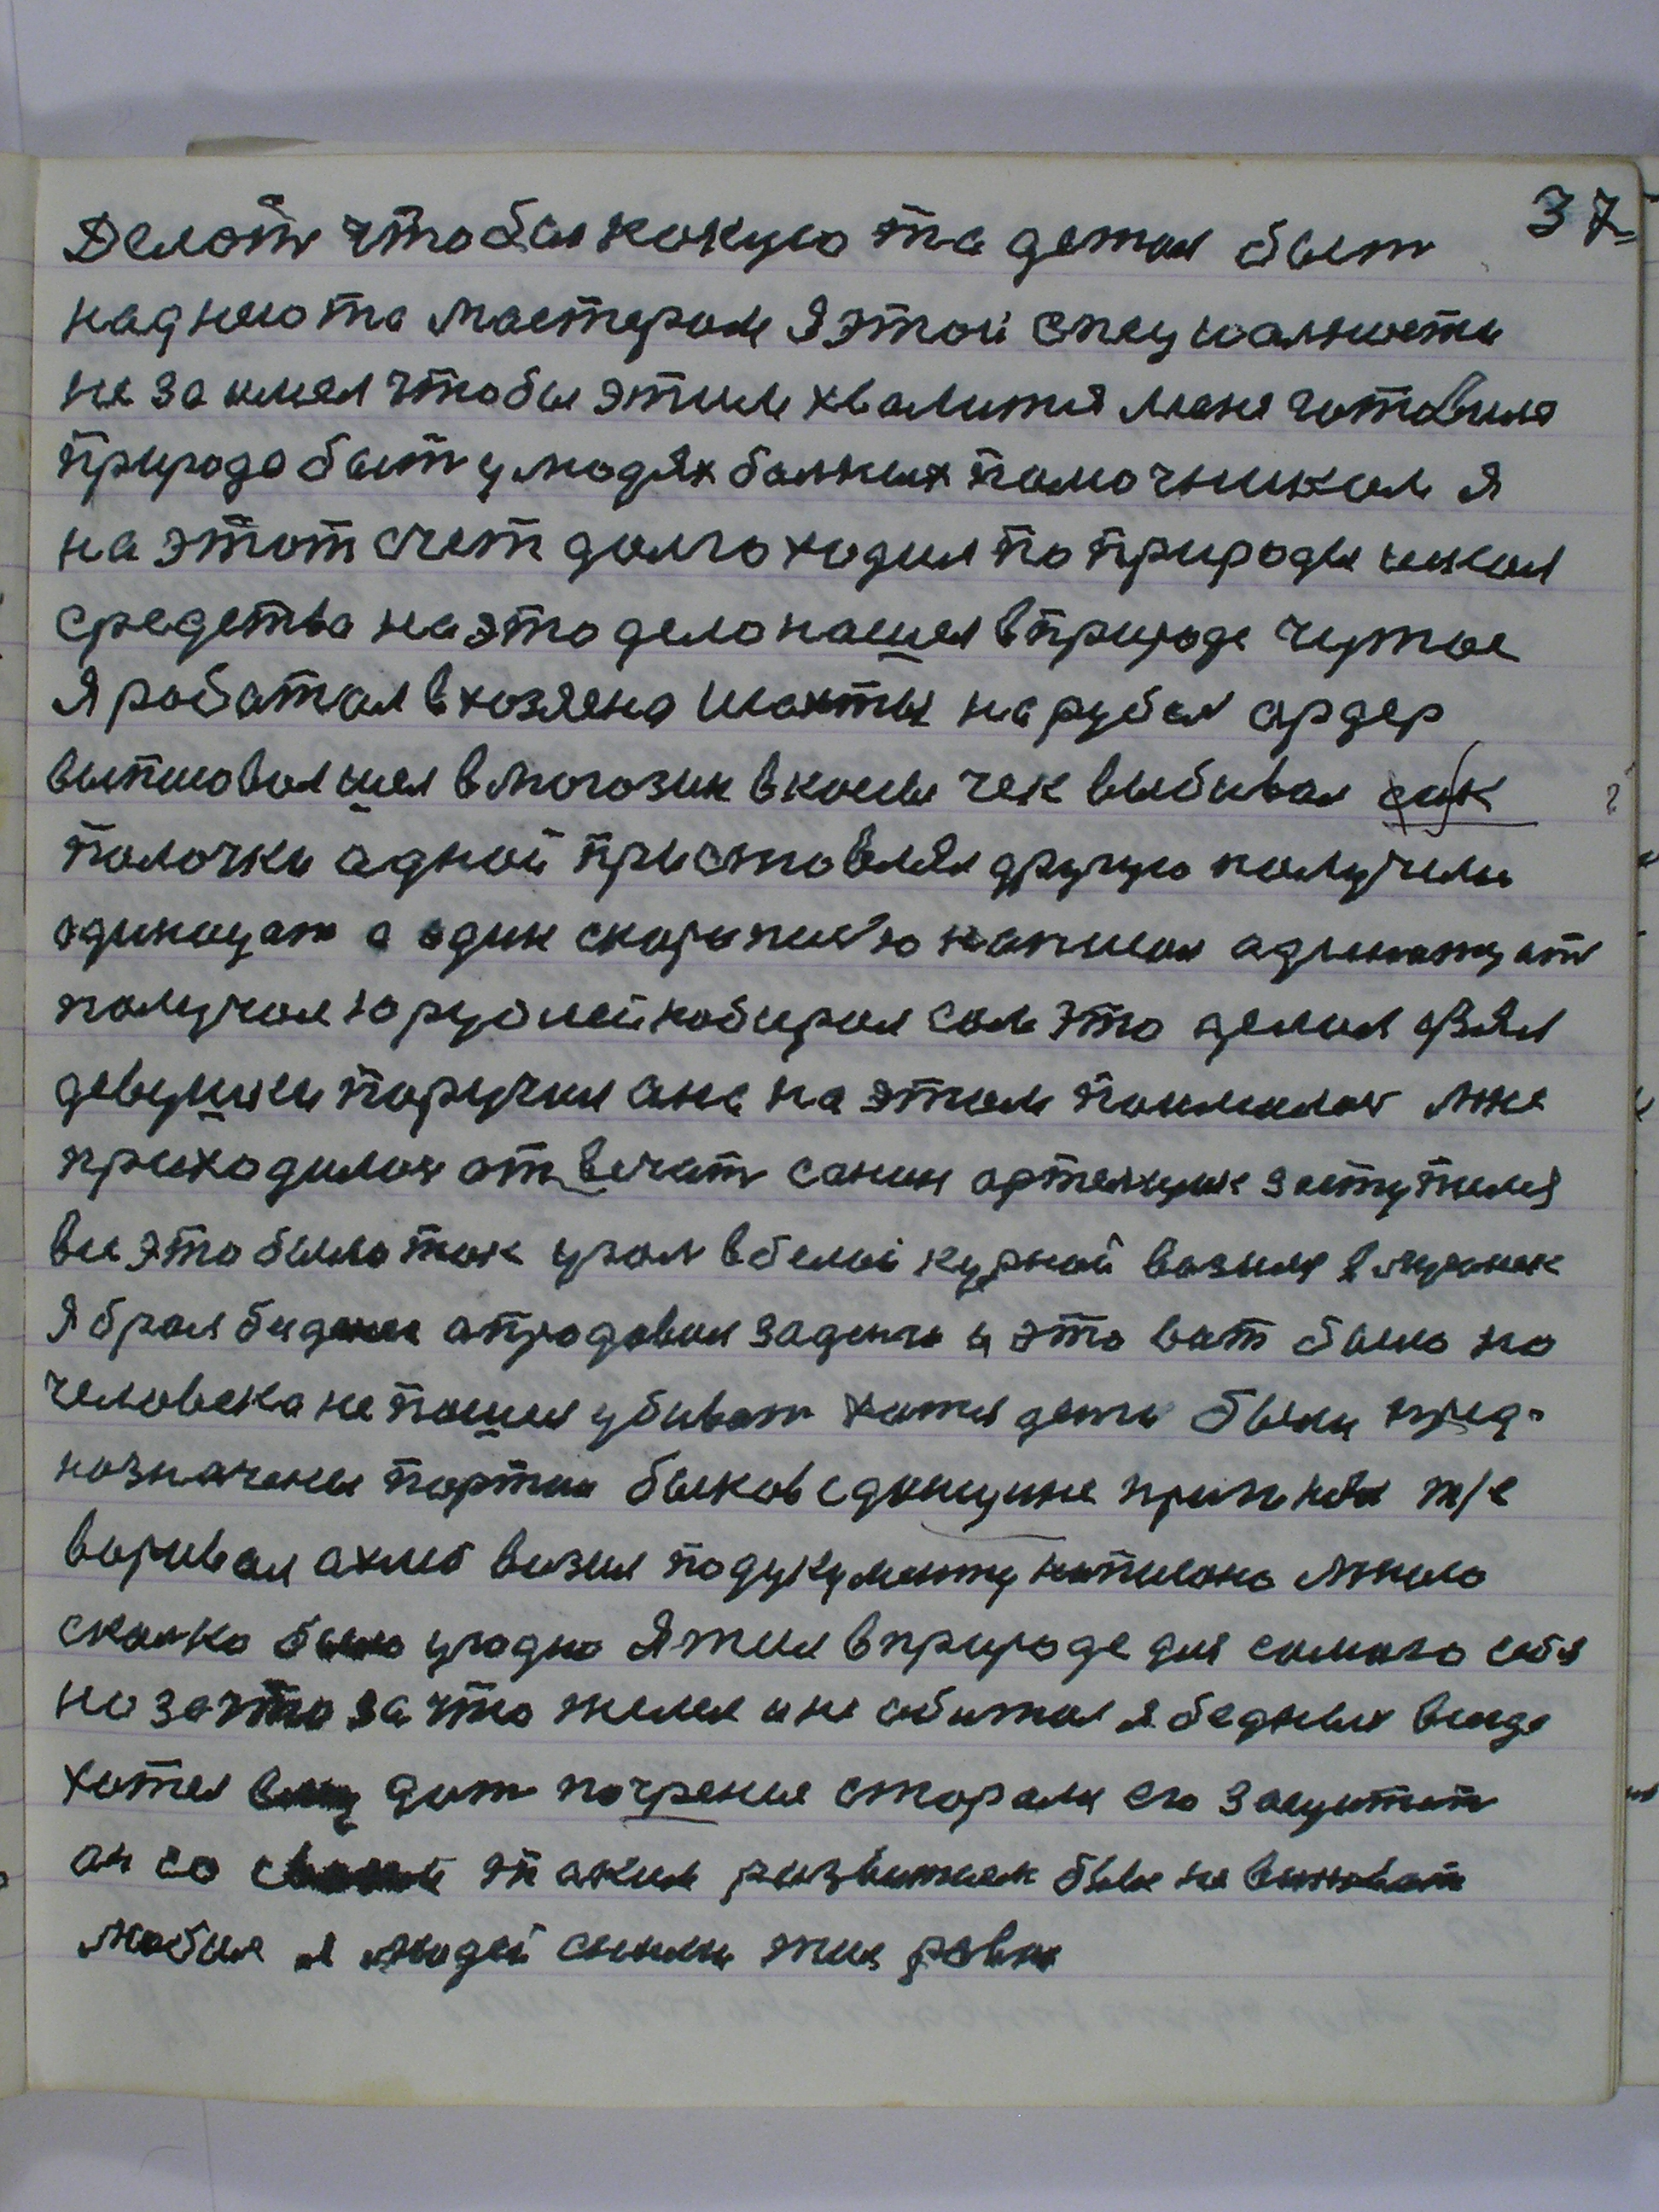 37
Делать чтобы какую та детал быт
над нею то мастером Я этой специалности
не заимел чтобы этим хвалится меня готовила
природа быт у людях болных помочником я
на этот счет долго ходил по природы искал
средства на это дело нашел в природе чутое
Я работал в хозяена шахты на рубел ордер
выписовал шел в могозин в кассы чек выбивал
полочки одной приставлял другую получели
одинацат а один скорописю написал адинатцат
получал 10 рублей набирал сам это делал взял
девушки поручил она на этом поималас мне
приходилос отвечат санин артелщик заступился
все это было так угол в белой курной возили в мешок
Я брал а продовал за денги и это вот было но
человека не пошел убиват хотя дети были пред-
назначены партии быков сдоющине т/е
воривал а хлеб возил по дукументу написано мнило
сколко было угодно Я жил в природе для самого себя
не за что за что желел и не обитал я бедных в виде
хотел дат почрение сторали его защитит
он со таким развитием был не виноват
любил я людей сними жил ровно